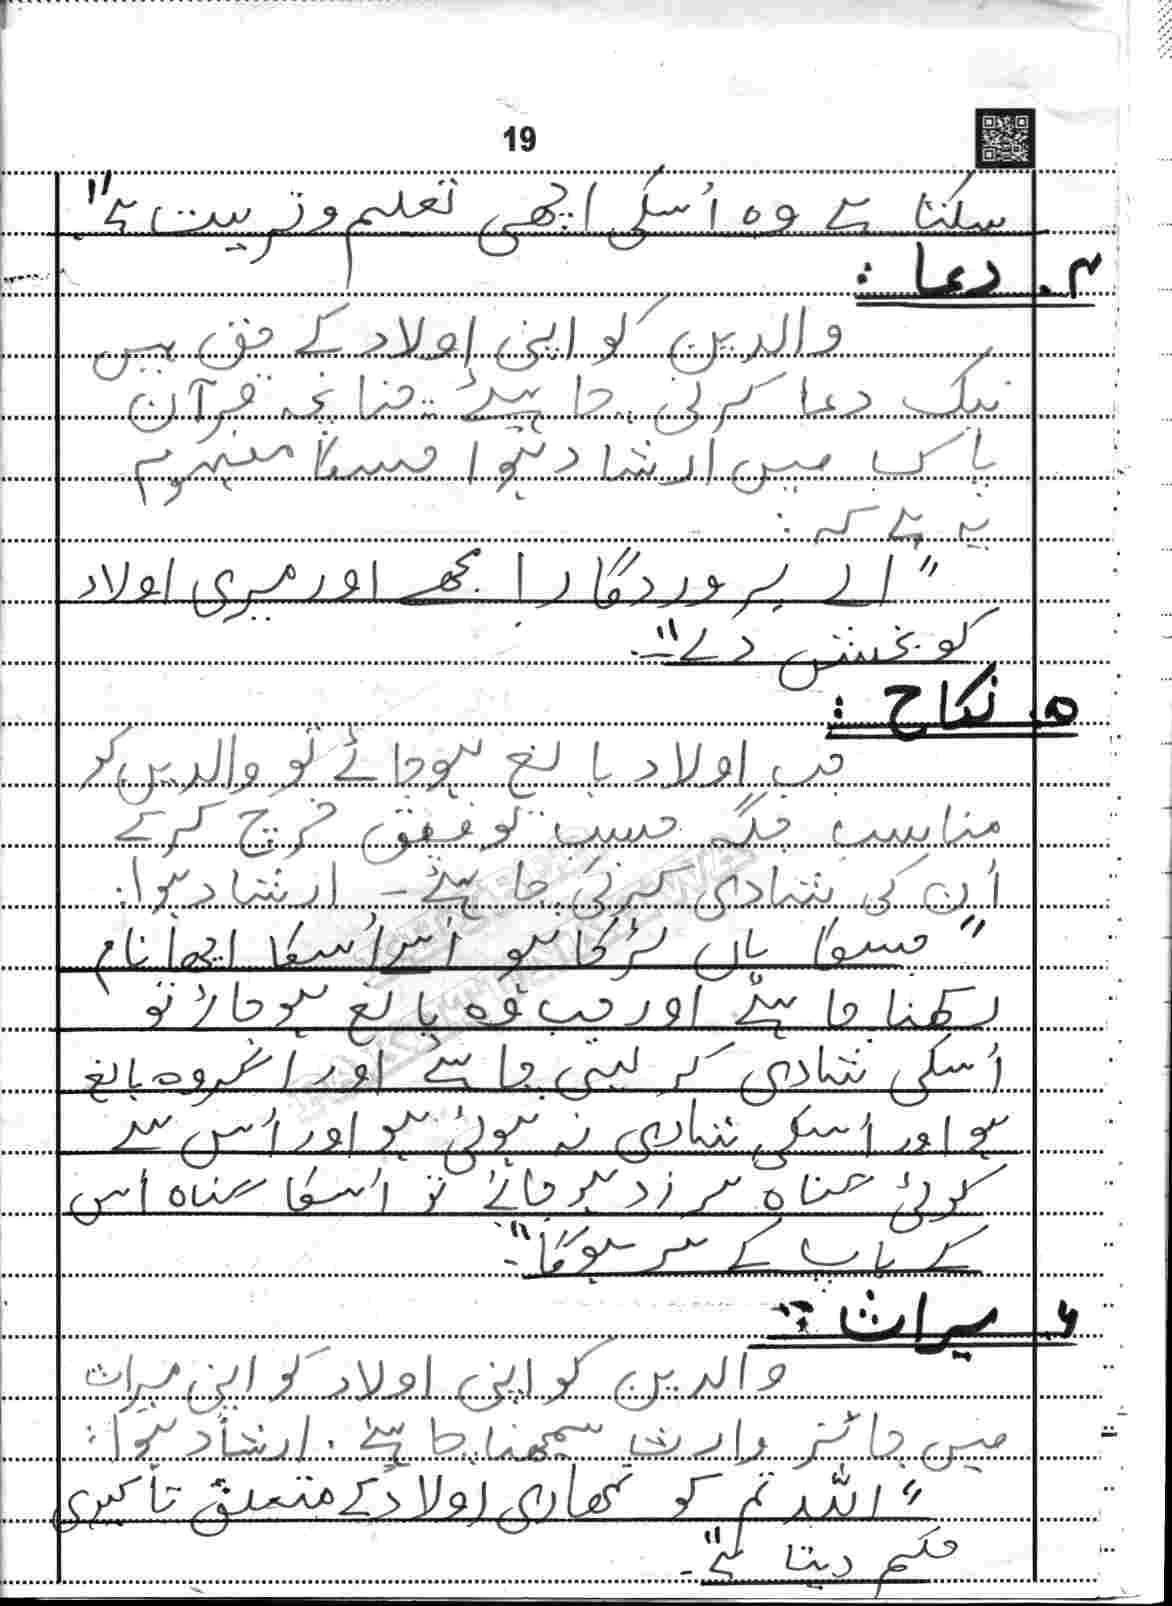 19
سکتا ہے وہ اُسکی اچھی تعلیم و تربیت ہے"
۴. دعا :
والدین کو اپنی اولاد کے حق میں
نیک دعا کرنی چاہیئے۔ چنانچہ قرآن
پاک میں ارشاد ہوا جسکا مفہوم
یہ ہے کہ :
"اے پروردگار! مجھے اور میری اولاد
کو بخش دے"۔
۵. نکاح :
جب اولاد بالغ ہوجائے تو والدین کو
مناسب جگہ حسب توفیق خرچ کرکے
اُن کی شادی کرنی چاہیئے۔ ارشاد ہوا:
"جسکا ہاں لڑکا ہو اُسے اُسکا اچھا نام
رکھنا چاہیئے اور جب وہ بالغ ہوجائے تو
اُسکی شادی کر لینی چاہیے اور اگر وہ بالغ
ہو اور اُسکی شادی نہ ہوئی ہو اور اُس سے
کوئی گناہ سرزد ہوجائے تو اُسکا گناہ اُس
کے باپ کے سر ہوگا"۔
۶. میراث :
والدین کو اپنی اولاد کو اپنی میراث
میں جائز وارث سمجھنا چاہیئے. ارشاد ہوا:
"اللہ تم کو تمھاری اولاد کے متعلق تاکیدی
حکم دیتا ہے"۔